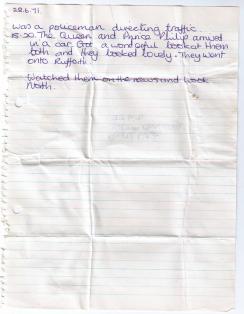 28.6.71.
was a policeman directing traffic
15.20. The Queen and Prince Philip arrived
in a car. Got a wonderful look at them
both and they looked lovely. They went
onto Rufforth.
Watched them on the news and Look
North.